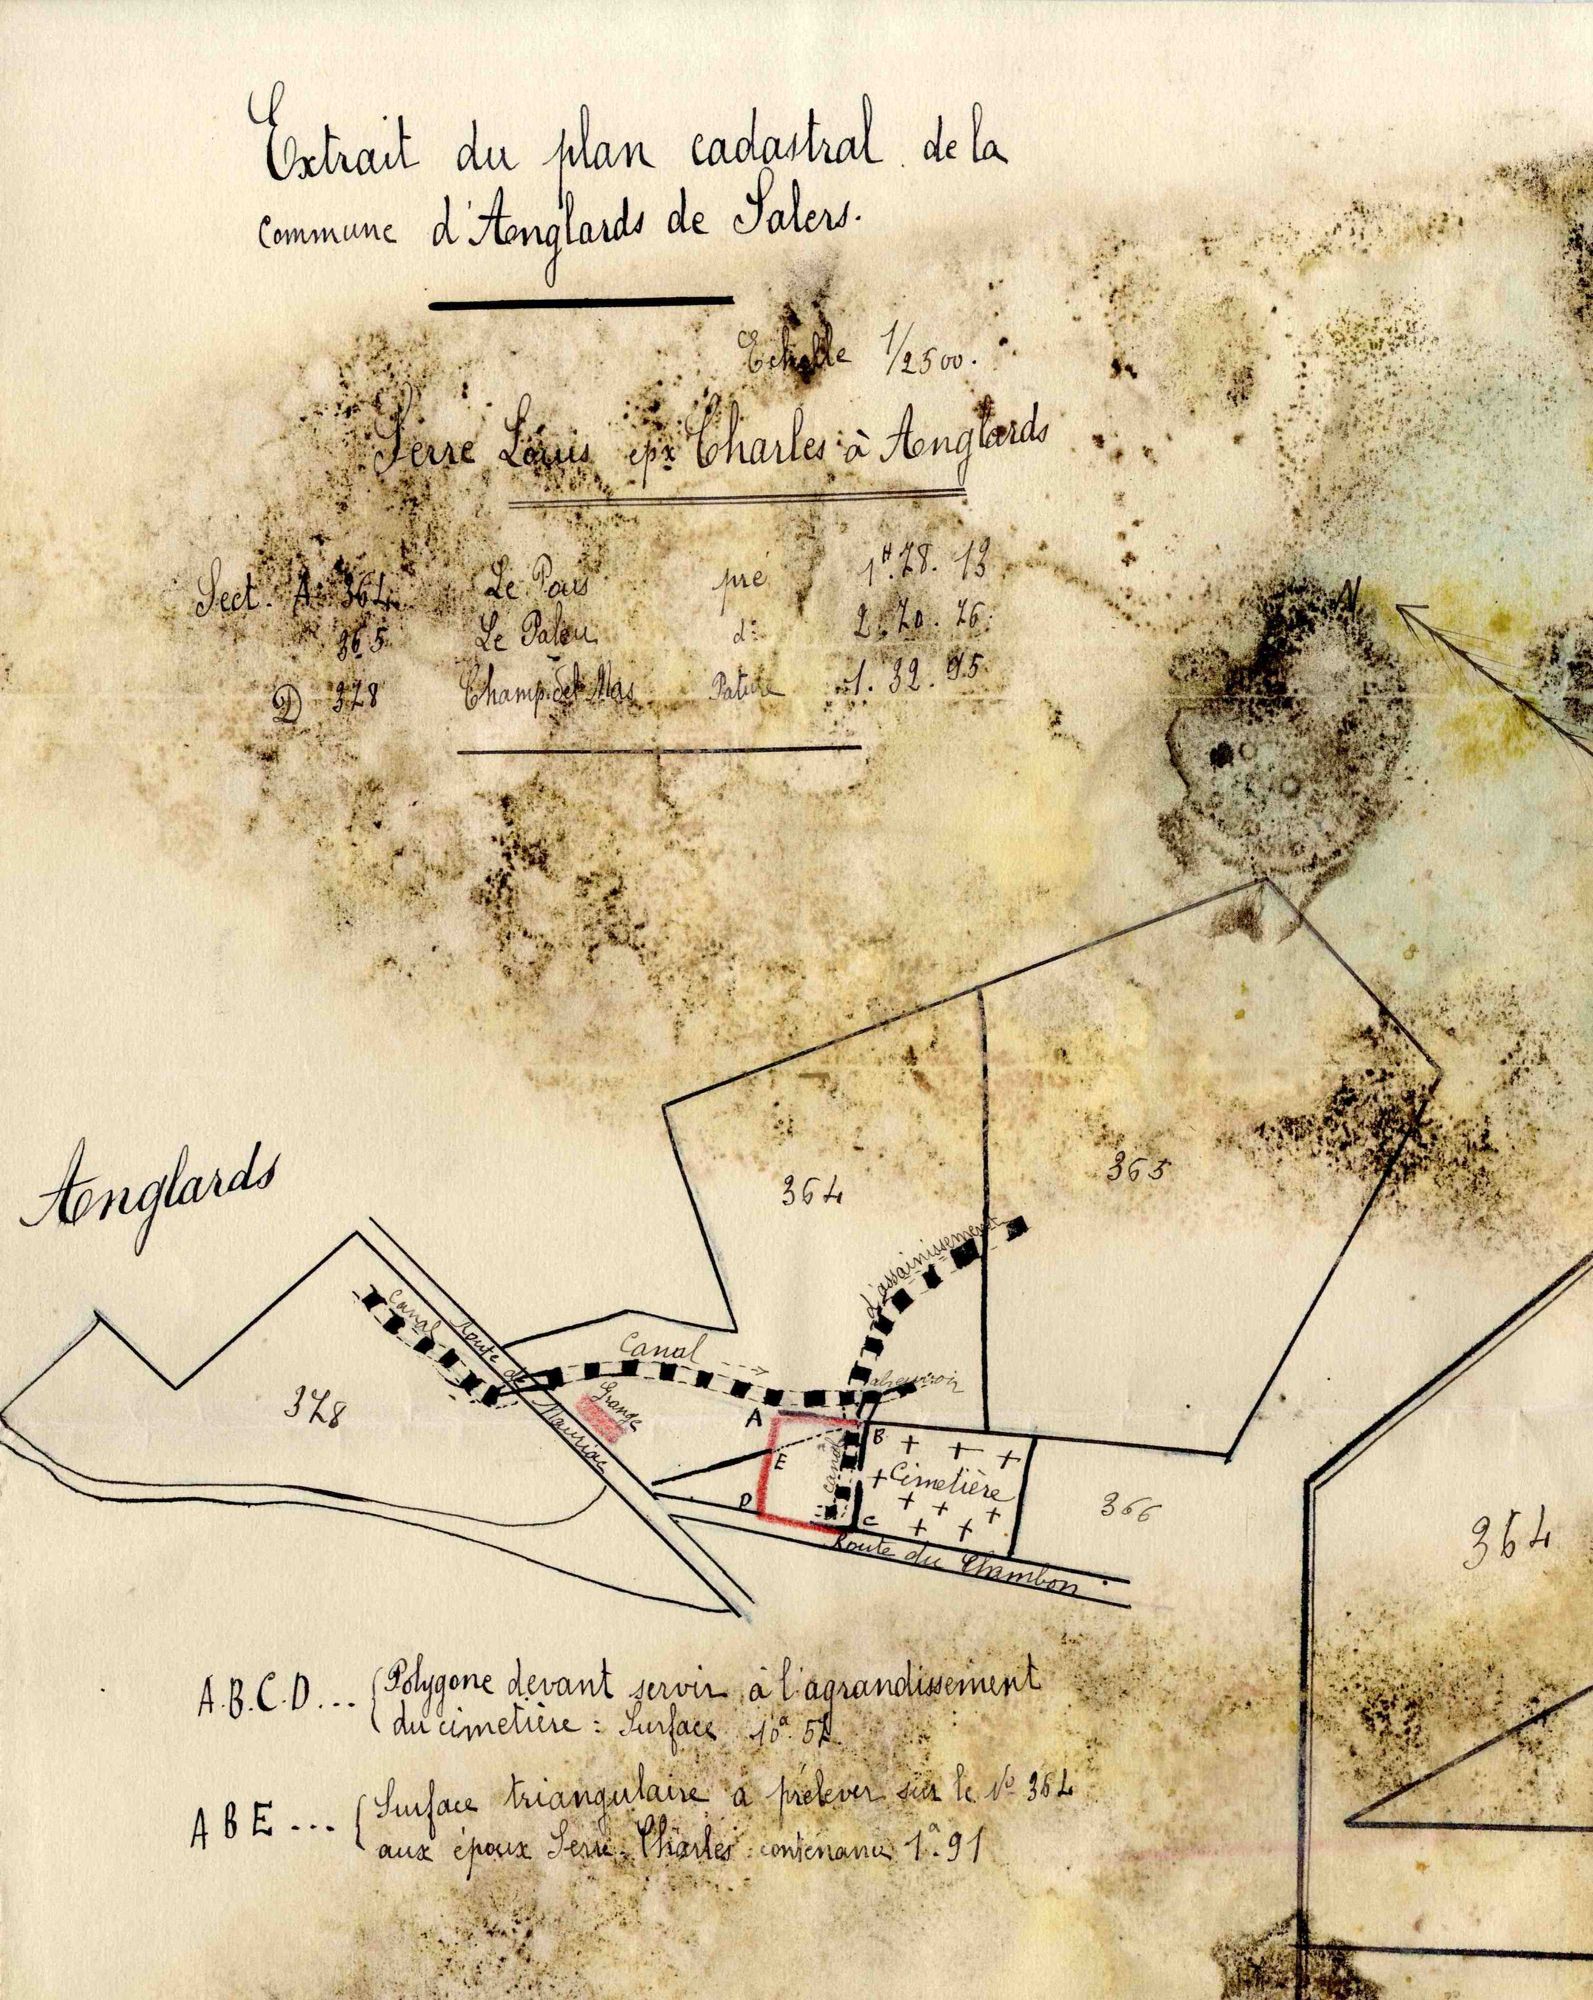 Extrait du plan cadastral de la
commune d'Anglards de Salers.
Echelle 1/2500.
Serre Louis epx Charles à Anglards
Sect. A 364 Le Pous pré 1H.78.13
365 Le Paleu d° 2.70.76.
D 378 Champ del Mas Pature 1.32.95
N
Anglards
364
365
d'assainissement
Canal
Canal
Route de Mauriac
378
Grange
abreuvoir
A
B
E
canal
Cimetière
D
C
366
Route du Chambon
364
A.B.C.D... Polygone devant servir à l'agrandissement
du cimetière : Surface 10a.52
A B E ... Surface triangulaire à prélever sur le No 364
aux époux Serre-Charles : contenance 1a.91